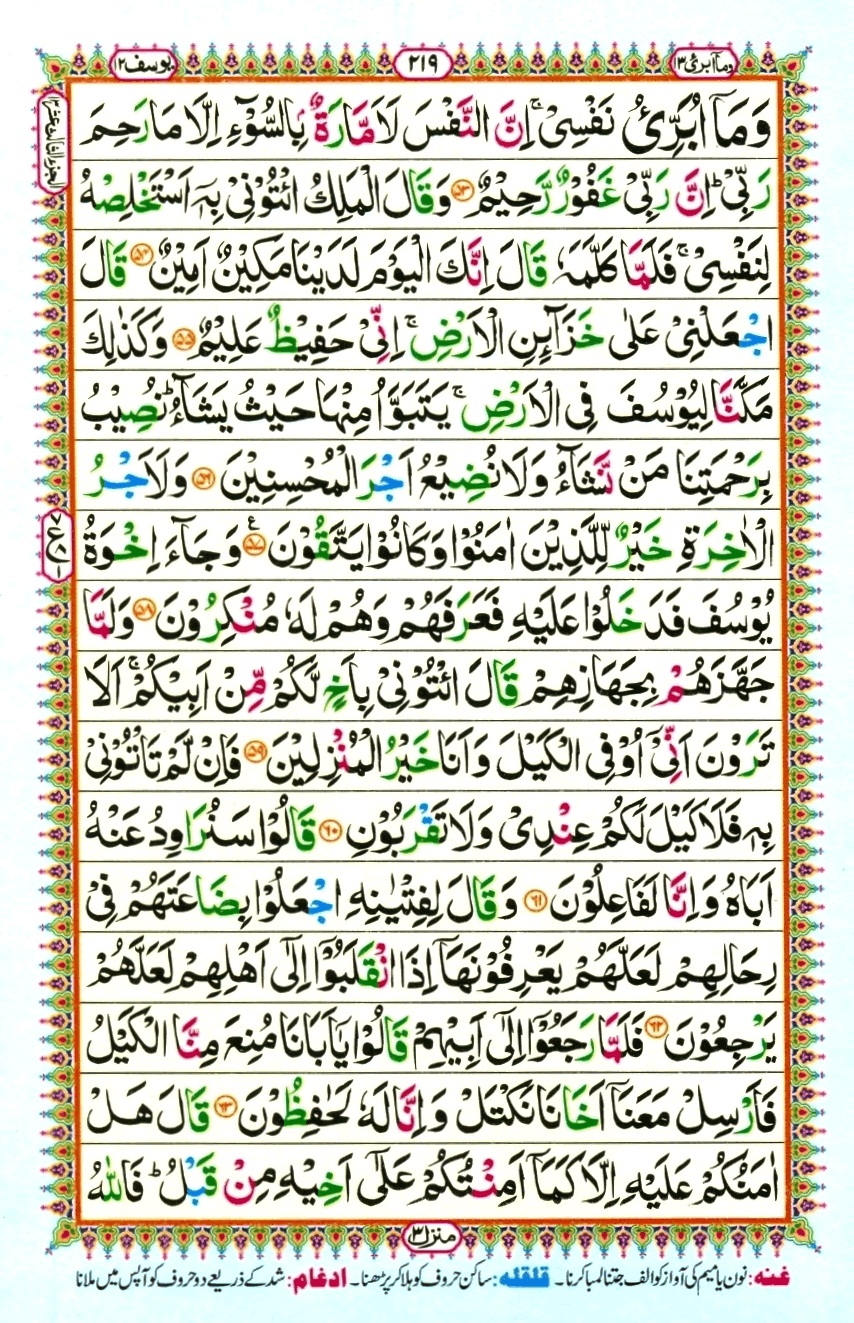 وماۤابرئ ١٣
٢١٩
يوسف ١٢
وَمَاۤ اُبَرِّئُ نَفْسِیْ ۚ اِنَّ النَّفْسَ لَاَمَّارَةٌۢ بِالسُّوْٓءِ اِلَّا مَا رَحِمَ
رَبِّیْ ؕ اِنَّ رَبِّیْ غَفُوْرٌ رَّحِیْمٌ ﴿۵۳﴾ وَقَالَ الْمَلِكُ ائْتُوْنِیْ بِهٖۤ اَسْتَخْلِصْهُ
لِنَفْسِیْ ۚ فَلَمَّا كَلَّمَهٗ قَالَ اِنَّكَ الْیَوْمَ لَدَیْنَا مَكِیْنٌ اَمِیْنٌ ﴿۵۴﴾ قَالَ
اجْعَلْنِیْ عَلٰی خَزَآىِٕنِ الْاَرْضِ ۚ اِنِّیْ حَفِیْظٌ عَلِیْمٌ ﴿۵۵﴾ وَكَذٰلِكَ
مَكَّنَّا لِیُوْسُفَ فِی الْاَرْضِ ۚ یَتَبَوَّاُ مِنْهَا حَیْثُ یَشَآءُ ؕ نُصِیْبُ
بِرَحْمَتِنَا مَنْ نَّشَآءُ وَلَا نُضِیْعُ اَجْرَ الْمُحْسِنِیْنَ ﴿۵۶﴾ وَلَاَجْرُ
الْاٰخِرَةِ خَیْرٌ لِّلَّذِیْنَ اٰمَنُوْا وَكَانُوْا یَتَّقُوْنَ ﴿۵۷﴾ ع وَجَآءَ اِخْوَةُ
یُوْسُفَ فَدَخَلُوْا عَلَیْهِ فَعَرَفَهُمْ وَهُمْ لَهٗ مُنْكِرُوْنَ ﴿۵۸﴾ وَلَمَّا
جَهَّزَهُمْ بِجَهَازِهِمْ قَالَ ائْتُوْنِیْ بِاَخٍ لَّكُمْ مِّنْ اَبِیْكُمْ ۚ اَلَا
تَرَوْنَ اَنِّیْۤ اُوْفِی الْكَیْلَ وَاَنَا خَیْرُ الْمُنْزِلِیْنَ ﴿۵۹﴾ فَاِنْ لَّمْ تَاْتُوْنِیْ
بِهٖ فَلَا كَیْلَ لَكُمْ عِنْدِیْ وَلَا تَقْرَبُوْنِ ﴿۶۰﴾ قَالُوْا سَنُرَاوِدُ عَنْهُ
اَبَاهُ وَاِنَّا لَفَاعِلُوْنَ ﴿۶۱﴾ وَقَالَ لِفِتْیٰنِهِ اجْعَلُوْا بِضَاعَتَهُمْ فِیْ
رِحَالِهِمْ لَعَلَّهُمْ یَعْرِفُوْنَهَاۤ اِذَا انْقَلَبُوْۤا اِلٰۤی اَهْلِهِمْ لَعَلَّهُمْ
یَرْجِعُوْنَ ﴿۶۲﴾ فَلَمَّا رَجَعُوْۤا اِلٰۤی اَبِیْهِمْ قَالُوْا یٰۤاَبَانَا مُنِعَ مِنَّا الْكَیْلُ
فَاَرْسِلْ مَعَنَاۤ اَخَانَا نَكْتَلْ وَاِنَّا لَهٗ لَحٰفِظُوْنَ ﴿۶۳﴾ قَالَ هَلْ
اٰمَنُكُمْ عَلَیْهِ اِلَّا كَمَاۤ اَمِنْتُكُمْ عَلٰۤی اَخِیْهِ مِنْ قَبْلُ ؕ فَاللّٰهُ
منزل ٣
غنہ: نون یا میم کی آواز کو الف جتنا لمبا کرنا۔ قلقلہ: ساکن حروف کو ہلا کر پڑھنا۔ ادغام: شد کے ذریعے دو حروف کو آپس میں ملانا